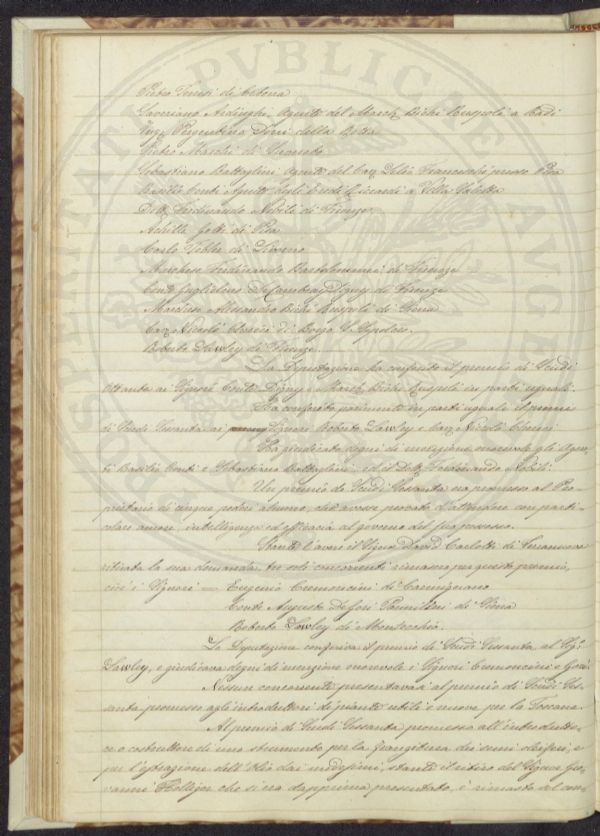 Pietro Tonti di Cetona
Saveriano Ardinghi, Agente del March. Bichi Ruspoli a Radi
Ingr. Pergentino Doni della Rotta
Pietro Marchi di
Sebastiano Battaglini Agente del Cav. Lelio Franceschi presso Pisa
Basilio Conti Agente degli Eredi Riccardi a Villa Saletta
Dott. Ferdinando Nobili di Firenze
Achille Gotti di Pisa
Carlo Tobler di Livorno
Marchese Ferdinando Bartolommei di Firenze
Conte Guglielmo De Cambray Digny di Firenze
Marchese Alessandro Bichi Ruspoli di Siena
Cav. Niccolò Chierici di Borgo S. Sepolcro
Roberto Lawley di Firenze
La Deputazione ha conferito il premio di Scudi
Ottanta ai Signori Conte Digny e March. Bichi Ruspoli in parti uguali.
Ha conferito parimente in parti uguali il premio
di Scudi Sessanta ai Signori Roberto Lawley e Cav. Niccolò
Ha giudicato degni di menzione onorevole gli Agen-
ti Basilio Conti e Sebastiano Battaglini ed il Dott. Ferdinando Nobili.
Un premio di Scudi Sessanta era promesso al Pro-
prietario di cinque poderi almeno, che avesse provato d'attendere con parti-
colare amore, intelligenza ed efficacia al governo del suo possesso.
Stante l'avere il Signor David Carlotti di Terranuova
ritirata la sua domanda, tre soli concorrenti rimasero per questo premio,
cioè i Signori — Eugenio Cremoncini di Carmignano
Conte Augusto De Gori Pannilini di Siena
Roberto Lawley di Montecchio.
La Deputazione conferiva il premio di Scudi Sessanta al Sigr.
Lawley, e giudicava degni di menzione onorevole i Signori Cremoncini e Gori.
Nessun concorrente presentavasi al premio di Scudi Ses-
santa promesso agli introduttori di piante utili e nuove per la Toscana.
Al premio di Scudi Sessanta promesso all'introdutto-
re o costruttore di uno strumento per la frangitura dei semi oleiferi, e
per l'estrazione dell'Olio dai medesimi, stante il ritiro del Signor Gio-
vanni che si era dapprima presentato, è rimasto del con-